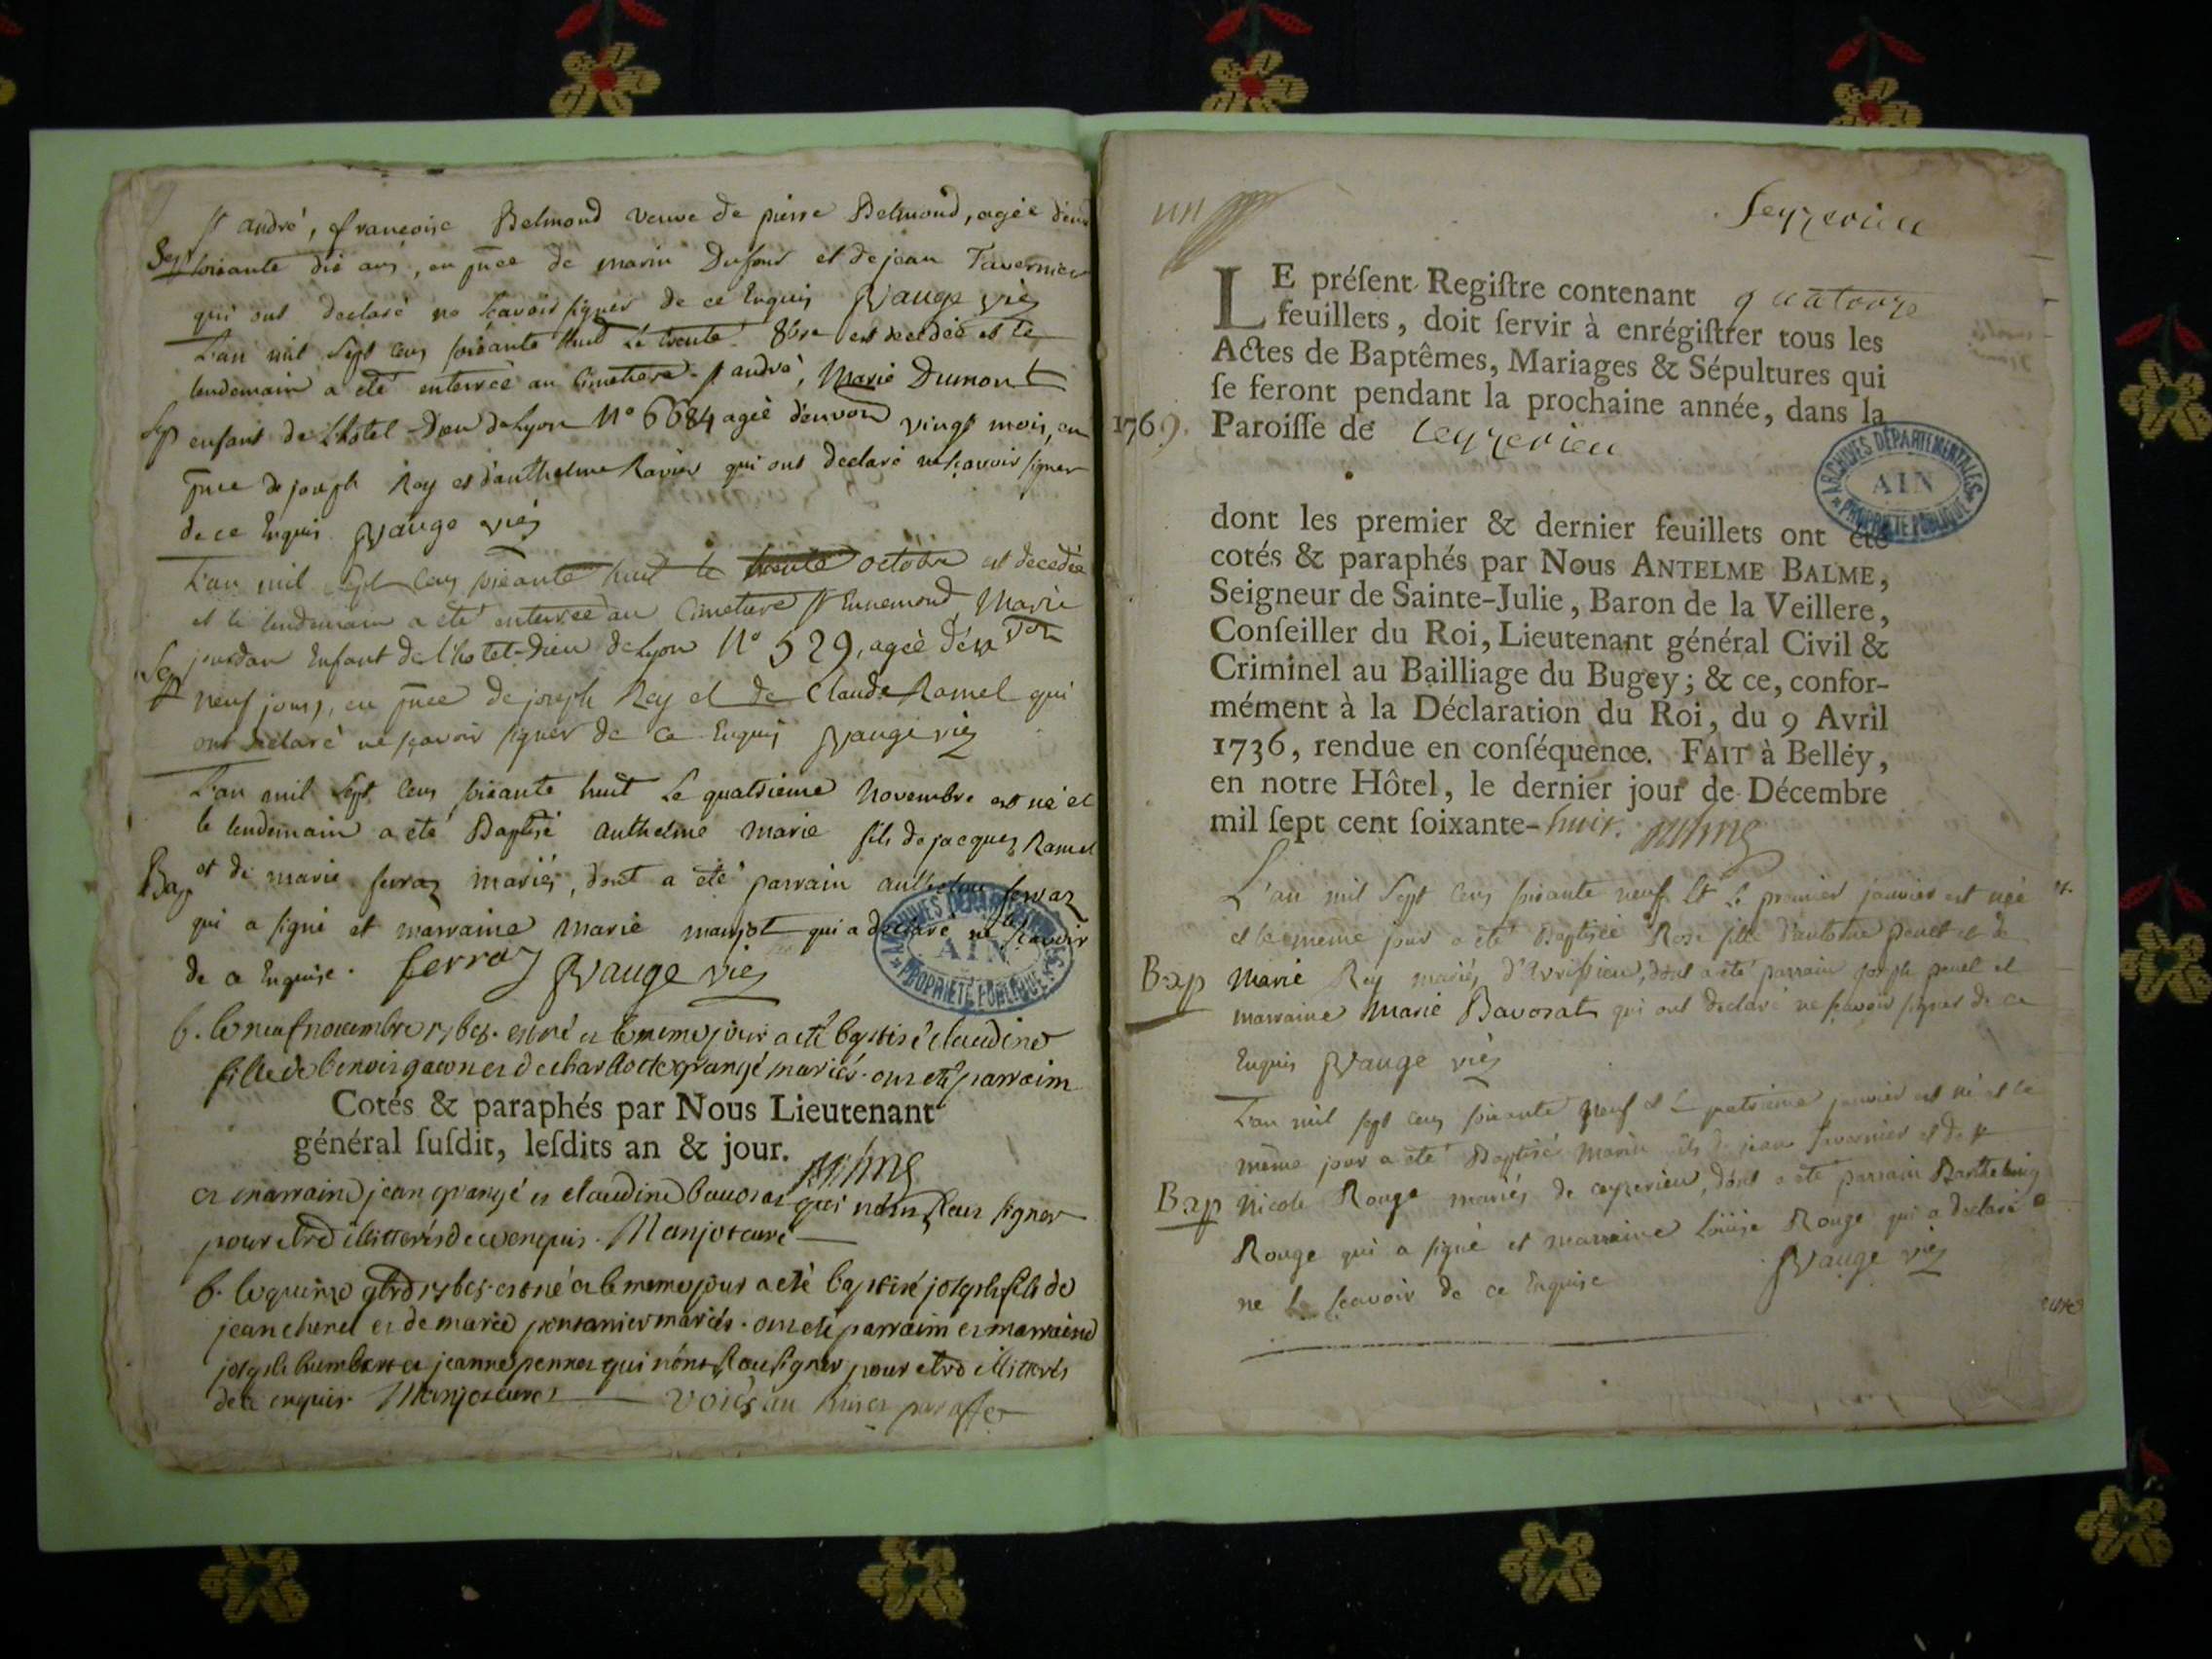 St André, françoise Belmond veuve de pierre Belmond, agée d'env
Sep soixante dix ans, en pnce de marin Dufour et de jean Tavernier
qui ont declaré ne sçavoir signer de ce Enquis Vauge vic
L'an mil sept cens soixante huit Le trente 8bre est decedée et le
lendemain a eté enterrée au Cimetiere St andré, Marie Dumont
Sep enfant de L'hotel-Dieu de Lyon N° 6684 agée d'environ vingt mois, en
pnce de joseph Rey et d'anthelme Ravier qui ont declaré ne sçavoir signer
de ce Enquis Vauge vic
L'an mil sept cens soixante huit le trente octobre est decedée
et le lendemain a eté enterrée au Cimetiere St Ennemond, Marie
Sep jourdan Enfant de l'hotel-Dieu de Lyon N° 529, agée d'environ
neuf jours, en pnce de joseph Rey et de Claude Ramel qui
ont declaré ne sçavoir signer de ce Enquis Vauge vic
L'an mil sept cens soixante huit Le quatrieme Novembre est né et
le lendemain a eté Baptisé anthelme marie fils de jacques Ramel
Bap et de marie ferraz mariés, dont a eté parrain anthelme ferraz
qui a signé et marraine Marie manjot qui a declaré ne le sçavoir
de ce Enquise. ferraz Vauge vic
b. le neuf novembre 1768. est né et le meme jour a eté baptisé claudine
fille de benoit gacon et de charlotte grangé mariés. ont eté parraim
Cotés & paraphés par Nous Lieutenant
général fufdit, lefdits an & jour.
et marraine jean grangé et claudine bavosat qui n'ont sceu signer
pour etre illitterés de ce enquis. Manjot curé
b. le quinze 9bre 1768. est né et le meme jour a eté baptisé joseph fils de
jean chenel et de marie pontanier mariés. ont eté parraim et marraine
joseph humbert et jeanne pennet qui n'ont sceu signer pour etre illitterés
de ce enquis. Manjot curé
Seyzerieu
LE préfent Regiftre contenant quatorze
feuillets, doit fervir à enrégiftrer tous les
Actes de Baptêmes, Mariages & Sépultures qui
fe feront pendant la prochaine année, dans la
1769. Paroiffe de Ceyzerieu
ARCHIVES DÉPARTEMENTALES AIN PROPRIÉTÉ PUBLIQUE
dont les premier & dernier feuillets ont été
cotés & paraphés par Nous ANTELME BALME,
Seigneur de Sainte-Julie, Baron de la Veillere,
Confeiller du Roi, Lieutenant général Civil &
Criminel au Bailliage du Bugey; & ce, confor-
mément à la Déclaration du Roi, du 9 Avril
1736, rendue en conféquence. FAIT à Belley,
en notre Hôtel, le dernier jour de Décembre
mil fept cent foixante-huit.
L'an mil sept cens soixante neuf et le premier janvier est née
et le meme jour a eté Baptisée Rose fille d'antoine penet et de
Bap Marie Rey mariés d'avrissieu, dont a eté parrain joseph penet et
marraine Marie Bavosat qui ont declaré ne sçavoir signer de ce
Enquis Vauge vic
L'an mil sept cens soixante neuf et le quatrieme janvier est né et le
même jour a eté Baptisé Marin fils de jean Tavernier et de
Bap Nicole Rouge mariés de ceyzerieu, dont a eté parrain Barthelemy
Rouge qui a signé et marraine Loüise Rouge qui a declaré
ne le sçavoir de ce Enquise Vauge vic